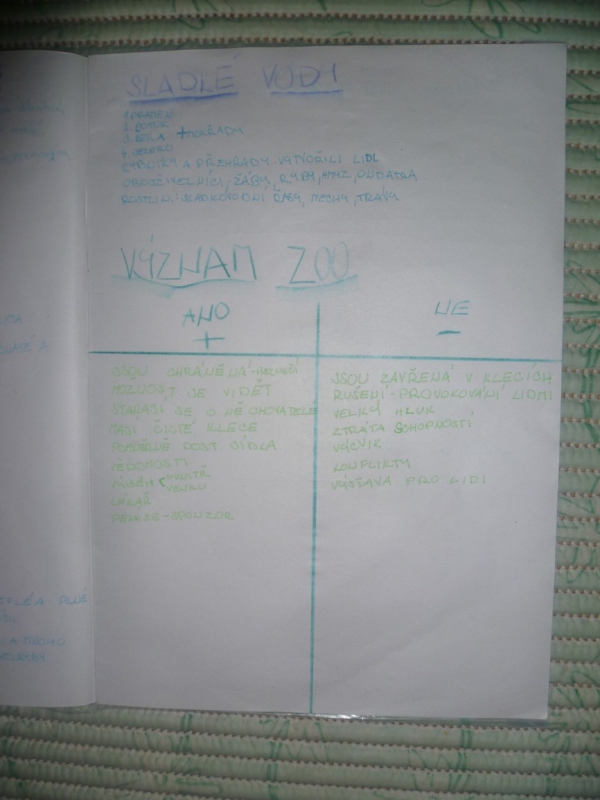 SLADLÉ VODY
1. PRAMEN
2. POTOK
3. ŘEKA + MOKŘADY
4. JEZERO
RYBNÍKY A PŘEHRADY VYTVOŘILI LIDI
OBOJŽIVELNÍCI, ŽÁBY, RYBY, HMYZ, ONDATRA
ROSTLIN: SLADKOVODNÍ ŘASY, MECHY, TRÁVA
VÝZNAM ZOO
ANO NE
+ -
JSOU CHRÁNĚNÁ
MOŽNOST JE VIDĚT
STARAJÍ SE O NĚ CHOVATELÉ
MAJÍ ČISTÉ KLECE
POMĚRNĚ DOST JÍDLA
VĚDOMOSTI
VENKU
LÉKAŘ
PENÍZE - SPONZOR
JSOU ZAVŘENÁ V KLECÍCH
RUŠENÍ - PROVOKOVÁNÍ LIDMI
VELIKÝ HLUK
ZTRÁTA SCHOPNOSTÍ
VÝCVIK
KONFLIKTY
VÝSTAVA PRO LIDI